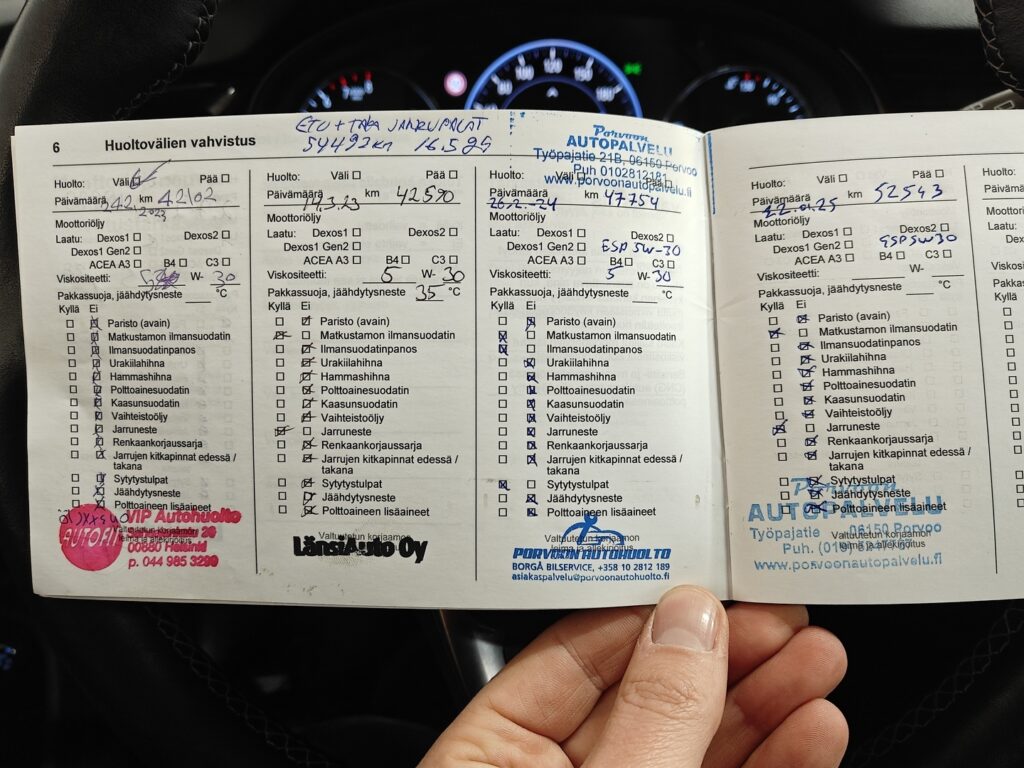 6 Huoltovälien vahvistus
ETU + TAKA JARRUPALAT
54492 km 16.5.25
Huolto: Väli Pää
Päivämäärä 24.2. 2023 km 42102
Moottoriöljy
Laatu: Dexos1 Dexos2
Dexos1 Gen2
ACEA A3 B4 C3
Viskositeetti: W- 30
Pakkassuoja, jäähdytysneste °C
Kyllä Ei
Paristo (avain)
Matkustamon ilmansuodatin
Ilmansuodatinpanos
Urakiilahihna
Hammashihna
Polttoainesuodatin
Kaasunsuodatin
Vaihteistoöljy
Jarruneste
Renkaankorjaussarja
Jarrujen kitkapinnat edessä /
takana
Sytytystulpat
Jäähdytysneste
Polttoaineen lisäaineet
Valtuutetun korjaamon
leima ja allekirjoitus
AUTOFIX
VIP Autohuolto
00880 Helsinki
p. 044 985 3290
Huolto: Väli Pää
Päivämäärä km 42590
Moottoriöljy
Laatu: Dexos1 Dexos2
Dexos1 Gen2
ACEA A3 B4 C3
Viskositeetti: 5 W- 30
Pakkassuoja, jäähdytysneste 35 °C
Kyllä Ei
Paristo (avain)
Matkustamon ilmansuodatin
Ilmansuodatinpanos
Urakiilahihna
Hammashihna
Polttoainesuodatin
Kaasunsuodatin
Vaihteistoöljy
Jarruneste
Renkaankorjaussarja
Jarrujen kitkapinnat edessä /
takana
Sytytystulpat
Jäähdytysneste
Polttoaineen lisäaineet
Valtuutetun korjaamon
leima ja allekirjoitus
LänsiAuto Oy
Porvoon
AUTOPALVELU
Työpajatie 21B, 06150 Porvoo
Puh 0102812181
www.porvoonautopalvelu.fi
Huolto: Väli Pää
Päivämäärä 26.2.-24 km 47754
Moottoriöljy
Laatu: Dexos1 Dexos2
Dexos1 Gen2 ESP 5W-30
ACEA A3 B4 C3
Viskositeetti: 5 W- 30
Pakkassuoja, jäähdytysneste °C
Kyllä Ei
Paristo (avain)
Matkustamon ilmansuodatin
Ilmansuodatinpanos
Urakiilahihna
Hammashihna
Polttoainesuodatin
Kaasunsuodatin
Vaihteistoöljy
Jarruneste
Renkaankorjaussarja
Jarrujen kitkapinnat edessä /
takana
Sytytystulpat
Jäähdytysneste
Polttoaineen lisäaineet
Valtuutetun korjaamon
leima ja allekirjoitus
PORVOON AUTOHUOLTO
BORGÅ BILSERVICE, +358 10 2812 189
asiakaspalvelu@porvoonautohuolto.fi
Huolto: Väli Pää
Päivämäärä 22.01.25 km 52543
Moottoriöljy
Laatu: Dexos1 Dexos2
Dexos1 Gen2 ESP 5W30
ACEA A3 B4 C3
Viskositeetti: W-
Pakkassuoja, jäähdytysneste °C
Kyllä Ei
Paristo (avain)
Matkustamon ilmansuodatin
Ilmansuodatinpanos
Urakiilahihna
Hammashihna
Polttoainesuodatin
Kaasunsuodatin
Vaihteistoöljy
Jarruneste
Renkaankorjaussarja
Jarrujen kitkapinnat edessä /
takana
Sytytystulpat
Jäähdytysneste
Polttoaineen lisäaineet
Valtuutetun korjaamon
leima ja allekirjoitus
Porvoon
AUTOPALVELU
Työpajatie 06150 Porvoo
Puh.
www.porvoonautopalvelu.fi